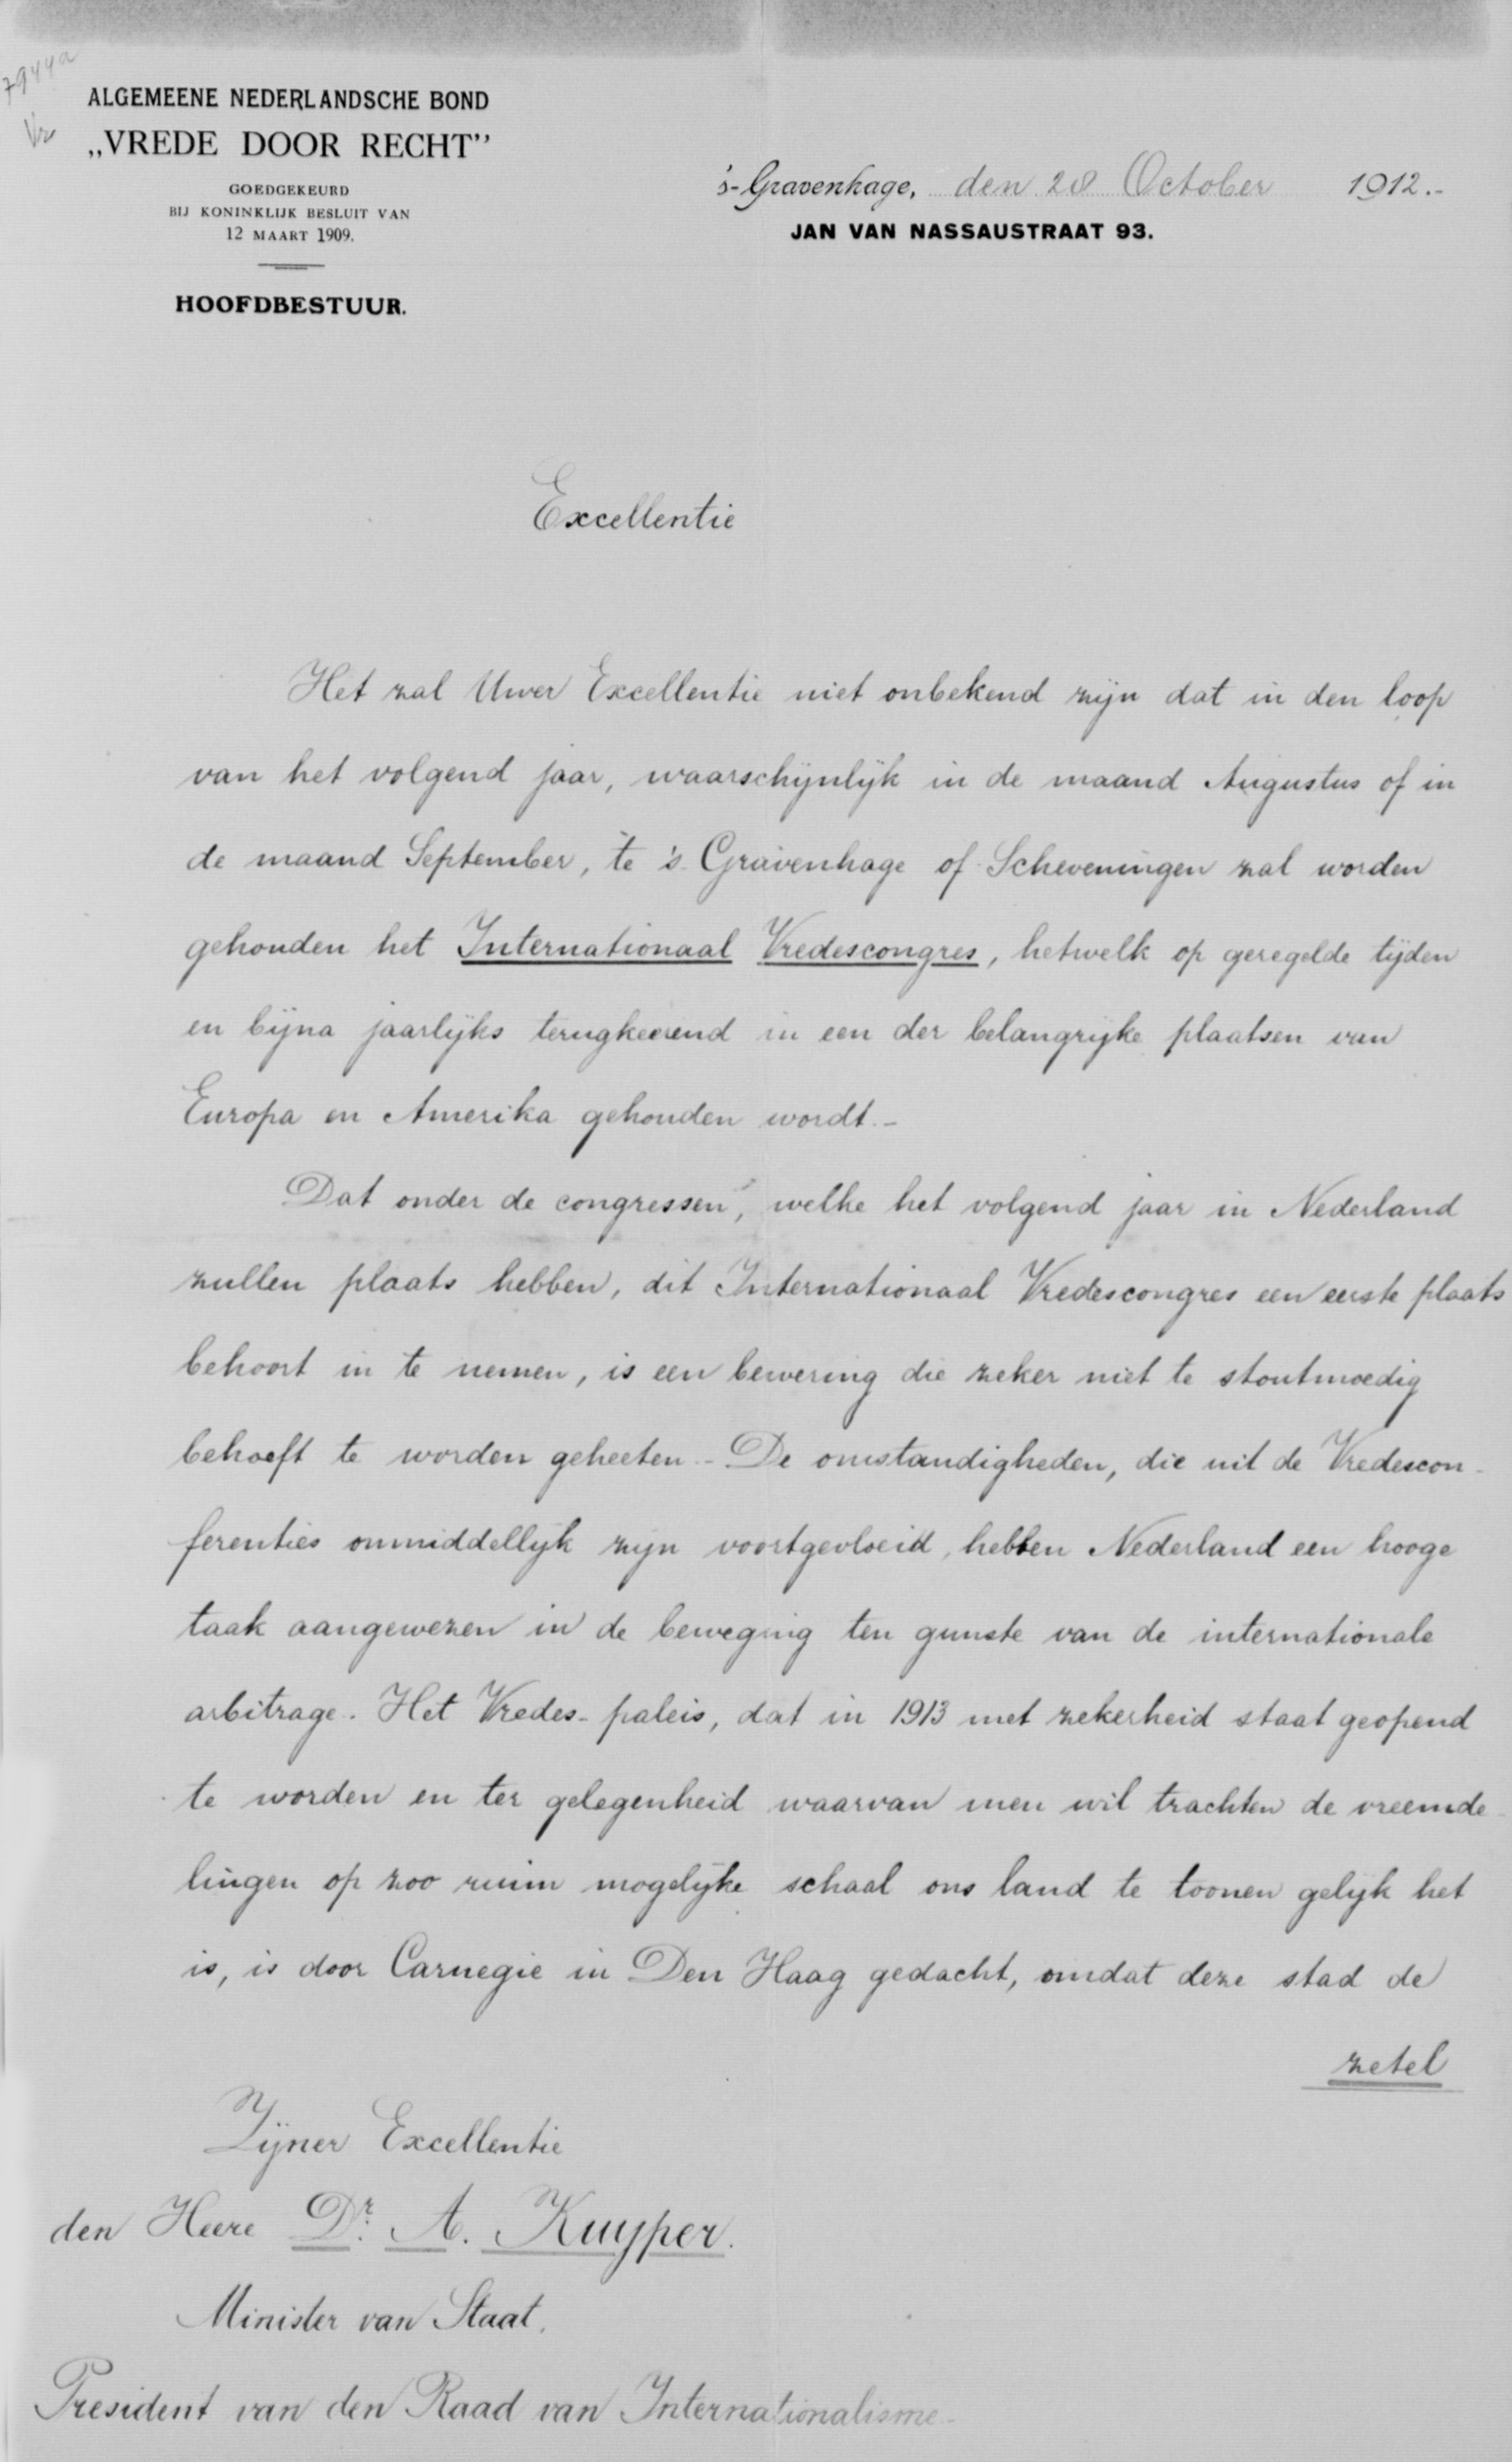 7944a
Vr
ALGEMEENE NEDERLANDSCHE BOND
„VREDE DOOR RECHT"
GOEDGEKEURD
BIJ KONINKLIJK BESLUIT VAN
12 MAART 1909.
HOOFDBESTUUR.
's-Gravenhage, den 28 October 1912.-
JAN VAN NASSAUSTRAAT 93.
Excellentie
Het zal Uwer Excellentie niet onbekend zijn dat in den loop
van het volgend jaar, waarschijnlijk in de maand Augustus of in
de maand September, te 's Gravenhage of Scheveningen zal worden
gehouden het Internationaal Vredescongres, hetwelk op geregelde tijden
en bijna jaarlijks terugkeerend in een der belangrijke plaatsen van
Europa en Amerika gehouden wordt.-
Dat onder de congressen, welke het volgend jaar in Nederland
zullen plaats hebben, dit Internationaal Vredescongres een eerste plaats
behoort in te nemen, is een bewering die zeker niet te stoutmoedig
behoeft te worden geheeten.- De omstandigheden, die uit de Vredescon-
ferenties onmiddellijk zijn voortgevloeid, hebben Nederland een hooge
taak aangewezen in de beweging ten gunste van de internationale
arbitrage. Het Vredes-paleis, dat in 1913 met zekerheid staat geopend
te worden en ter gelegenheid waarvan men wil trachten de vreemde-
lingen op zoo ruim mogelijke schaal ons land te toonen gelijk het
is, is door Carnegie in Den Haag gedacht, omdat deze stad de
zetel
Zijner Excellentie
den Heere Dr. A. Kuyper.
Minister van Staat.
President van den Raad van Internationalisme-